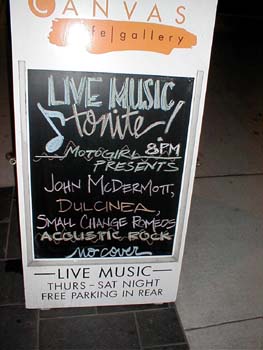 CANVAS
cafe|gallery
LIVE MUSIC
tonite!
MOTOGIRL 8PM
PRESENTS
JOHN MCDERMOTT,
DULCINEA,
SMALL CHANGE ROMEOS
ACOUSTIC ROCK
no cover
LIVE MUSIC
THURS - SAT NIGHT
FREE PARKING IN REAR